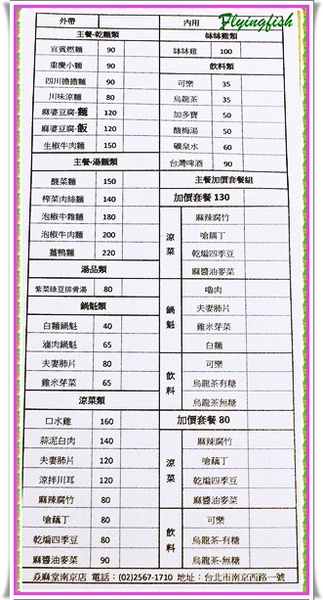 Flyingfish
外帶
內用
主餐-乾麵類
宜賓燃麵 90
重慶小麵 90
四川擔擔麵 90
川味涼麵 80
麻婆豆腐-麵 120
麻婆豆腐-飯 120
生椒牛肉麵 150
主餐-湯麵類
酸菜麵 150
榨菜肉絲麵 140
泡椒牛雜麵 180
泡椒牛肉麵 200
薑鴨麵 220
湯品類
紫菜綠豆排骨湯 80
鍋魁類
白麵鍋魁 40
滷肉鍋魁 65
夫妻肺片 80
雞米芽菜 65
涼菜類
口水雞 160
蒜泥白肉 140
夫妻肺片 120
涼拌川耳 120
麻辣腐竹 80
嗆藕丁 80
乾煸四季豆 80
麻醬油麥菜 90
缽缽雞類
缽缽雞 100
飲料類
可樂 35
烏龍茶 35
加多寶 50
酸梅湯 50
礦泉水 60
台灣啤酒 90
主餐加價套餐組
加價套餐 130
涼菜
麻辣腐竹
嗆藕丁
乾煸四季豆
麻醬油麥菜
鍋魁
嚕肉
夫妻肺片
雞米芽菜
白麵
飲料
可樂
烏龍茶有糖
烏龍茶無糖
加價套餐 80
涼菜
麻辣腐竹
嗆藕丁
乾煸四季豆
麻醬油麥菜
飲料
可樂
烏龍茶-有糖
烏龍茶-無糖
焱麻堂南京店 電話：(02)2567-1710 地址：台北市南京西路一號